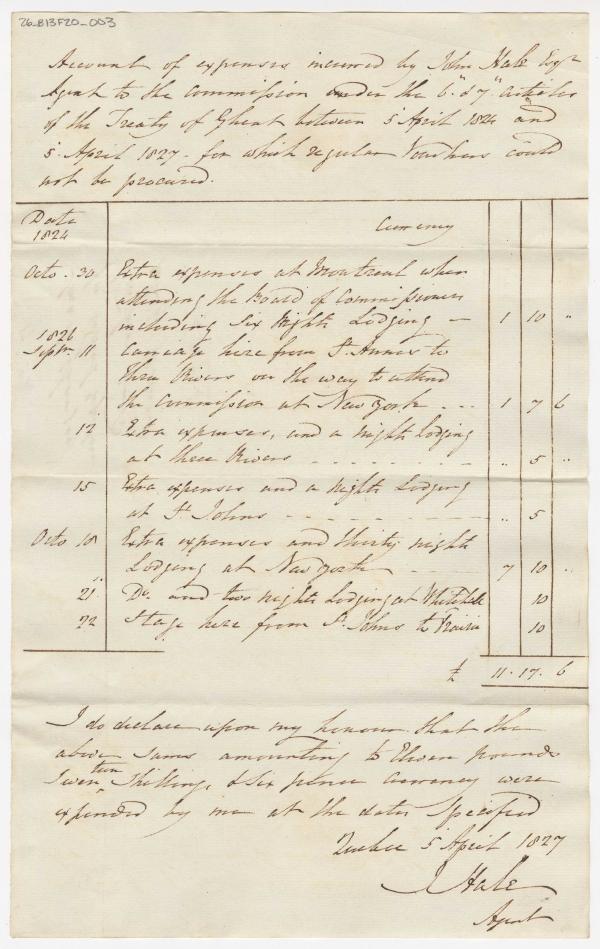 26-B13F20-003
Account of expenses incurred by John Hale Esqr
Agent to the commission under the 6" & 7" articles
of the Treaty of Ghent between 5 April 1824 and
5 April 1827 - for which regular Vouchers could
not be procured.
Date
1824
Currency
Octo. 30 Extra expenses at Montreal when
attending the Board of Commissioners
including Six Nights Lodging — 1 10 "
1826
Septm 11 Carriage hire from St Annes to
Three Rivers on the way to attend
the Commission at New York - - - 1 7 6
12 Extra expenses, and a nights Lodging
at three Rivers - - - - - - - " 5 "
15 Extra expenses and a nights Lodging
at St Johns - - - - - - - " 5
Octo 18 Extra expenses and thirty nights
Lodging at New York - 7 10 "
21 Do. and two nights Lodging at Whitehall 10
22 Stage hire from St. Johns to Prairie 10
£ 11 . 17 . 6
I do declare upon my honour that the
above sums amounting to Eleven pounds
Seventeen Shillings & Six pence Currency were
expended by me at the dates Specified
Quebec 5 April 1827
J Hale
Agent